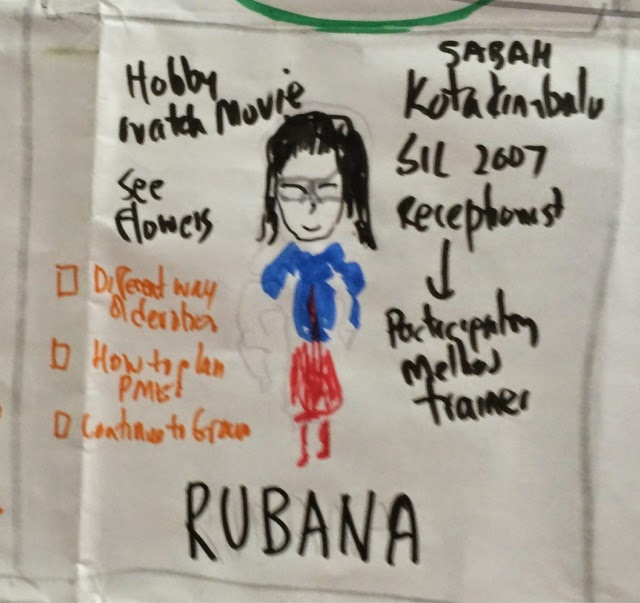 Hobby
watch Movie
See
Flowers
Different way
How to plan
Continue to Grow
SABAH
Kota Kinabalu
SIL 2007
Receptionist
Participatory
Method
trainer
RUBANA